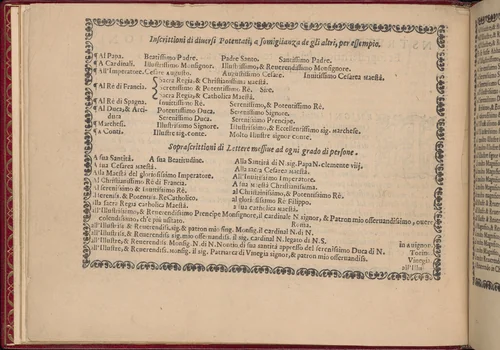 Inscrittioni di diversi Potentati, a somiglianza de gli altri, per essempio.
¶ Al Papa. Beatissimo Padre. Padre Santo. Santissimo Padre.
¶ A Cardinali. Illustrissimo Monsignor. Illustrissimo, & Reverendissimo Monsignore.
¶ All'Imperatore. Cesare augusto. Augustissimo Cesare. Invittissimo Cesarea Maestà.
Sacra Regia, & Christianissima Maestà.
¶ Al Rè di Francia. Serenissimo & Potentissimo Rè. Sire.
Sacra Regia, & Catholica Maestà.
¶ Al Rè di Spagna. Invittissimo Rè. Serenissimo, & Potentissimo Rè.
¶ Al Duca, & Arci- Potentissimo Duca. Serenissimo Signore.
duca Serenissimo Duca. Serenissimo Prencipe.
¶ Marchese. Illustrissimo Signore. Illustrissimo, & Eccellentissimo sig. Marchese.
¶ a Conti. Illustre sig. Conte. Molto Illustre signor Conte.
Soprascrittioni di Lettere messive ad ogni grado di persone.
A sua Santità. A sua Beatitudine. Alla Santità di N. sig. Papa N. clemente viij.
A sua Cesarea Maestà. Alla sacra Cesarea Maestà.
Alla Maestà del gloriosissimo Imperatore. All'Invittissimo Imperatore.
Al Christianissimo Rè di Francia. A sua Maestà Christianissima.
Al serenissimo & Invittissimo Rè. al Christianissimo, & Potentissimo Rè.
al gloriosissimo Re Filippo.
Alla sacra Regia Catholica Maestà. a sua Catholica Maestà.
all'Illustrissimo, & Reverendissimo Prencipe Monsignore, il cardinale N signor, & Patron mio osservandissimo, overo
colendissimo, ch'è più usitato. Roma.
all'Illustriss. & Reverendiss. sig. & patron mio sing. Monsig. il cardinal N. di N.
all'Illustriss. & Reverendiss. sig. mio osservandiss. il sig. cardinal N. legato di N. S. in avignon.
all'Illustre, & Reverendis Monsig. N. di N. Nontio di sua santità appresso del serenissimo Duca di N. Torino.
all'Illustre, & Reverendiss. monsig. il sig. Patriarca di Vinegia signor, & patron mio osservandiss. Vinegia.
all'Illu-